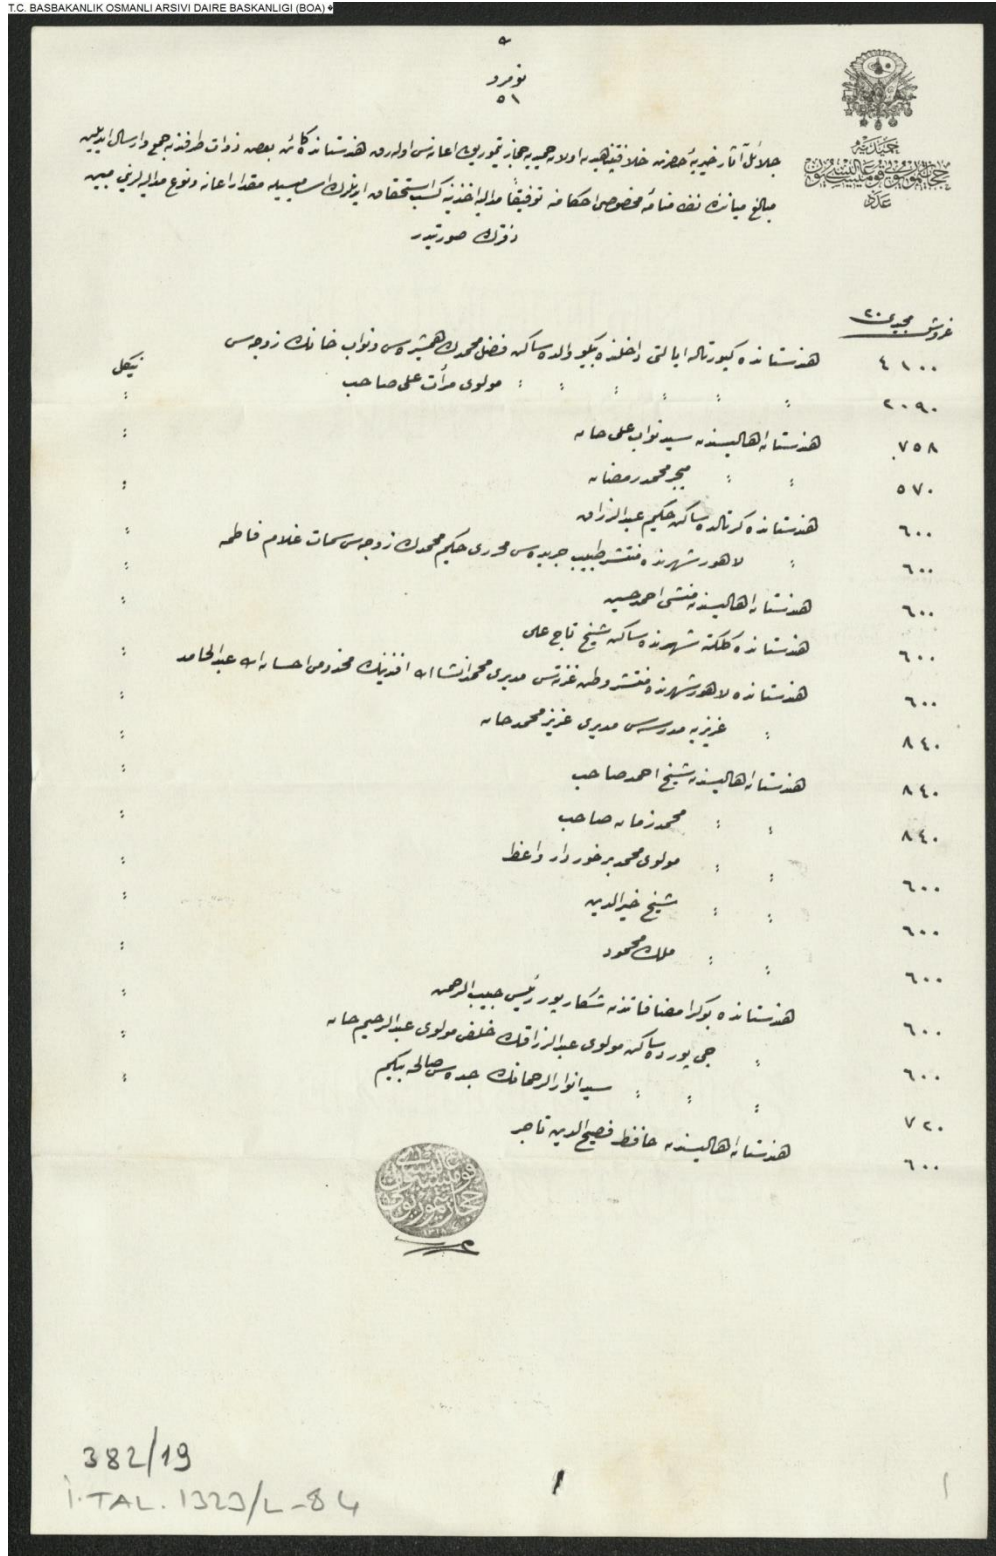 T.C. BASBAKANLIK OSMANLI ARSIVI DAIRE BASKANLIGI (BOA)
نومرو
٥١
حميديه
حجاز تيموريولى قوميسيون عاليسى
عدد
جلائل آثار خيريۀ حضرت خلافتپناهيدن اولان حميديه حجاز تيموريولى اعانه‌سى اولەرق هندستانده كائن بعض ذوات طرفندن جمع و ارسال ايديلن
مبالغ مياننده نظامنامۀ مخصوصى احكامنه توفيقاً مداليه اخذينه كسب استحقاق ايدنلرك اساميسيله مقدار اعانه و نوع مداليه‌لرينى مبين
دفترك صورتيدر
غروش مجيدى ٢٠
٤١٠٠ هندستانده كپورتاله ايالتى داخلنده بگووالده ساكن فضل محمدك همشيره‌سى ونواب خانك زوجه‌سى نيكل
٢٠٩٠ " " " " " " مولوى مرأت على صاحب "
٧٥٨ هندستان اهاليسندن سيد نواب على خان "
٥٧٠ " " ميجر محمد رمضان "
٦٠٠ هندستانده كرنالده ساكن حكيم عبد الرزاق "
٦٠٠ " لاهور شهرنده منتشر طبيب جريده‌سى محررى حكيم محمدك زوجه‌سى سمات غلام فاطمه "
٦٠٠ هندستان اهاليسندن منشى احمد حسين "
٦٠٠ هندستانده كلكته شهرنده ساكن شيخ تاج على "
٦٠٠ هندستانده لاهور شهرنده منتشر وطن غزته‌سى مديرى محمد انشاء الله افندينك مخدومى احسان الله عبد الحامد "
٨٤٠ " عزيزيه مدرسه‌سى مديرى عزيز محمد خان "
٨٤٠ هندستان اهاليسندن شيخ احمد صاحب "
٨٤٠ " " محمد زمان صاحب "
٦٠٠ " " مولوى محمد برخوردار واعظ "
٦٠٠ " " شيخ خير الدين "
٦٠٠ " " ملك محمود "
٦٠٠ هندستانده بوكرا مضافاتندن شكارپور رئيسى حبيب الرحمن "
٦٠٠ " جى پورده ساكن مولوى عبد الرزاقك خلفى مولوى عبد الرحيم خان "
٧٢٠ " " " سيد انوار الرحمانك جده‌سى صالحه بيگم "
٦٠٠ هندستان اهاليسندن حافظ فصيح الدين تاجر
382/19
İ.TAL. 1323/L-84
1